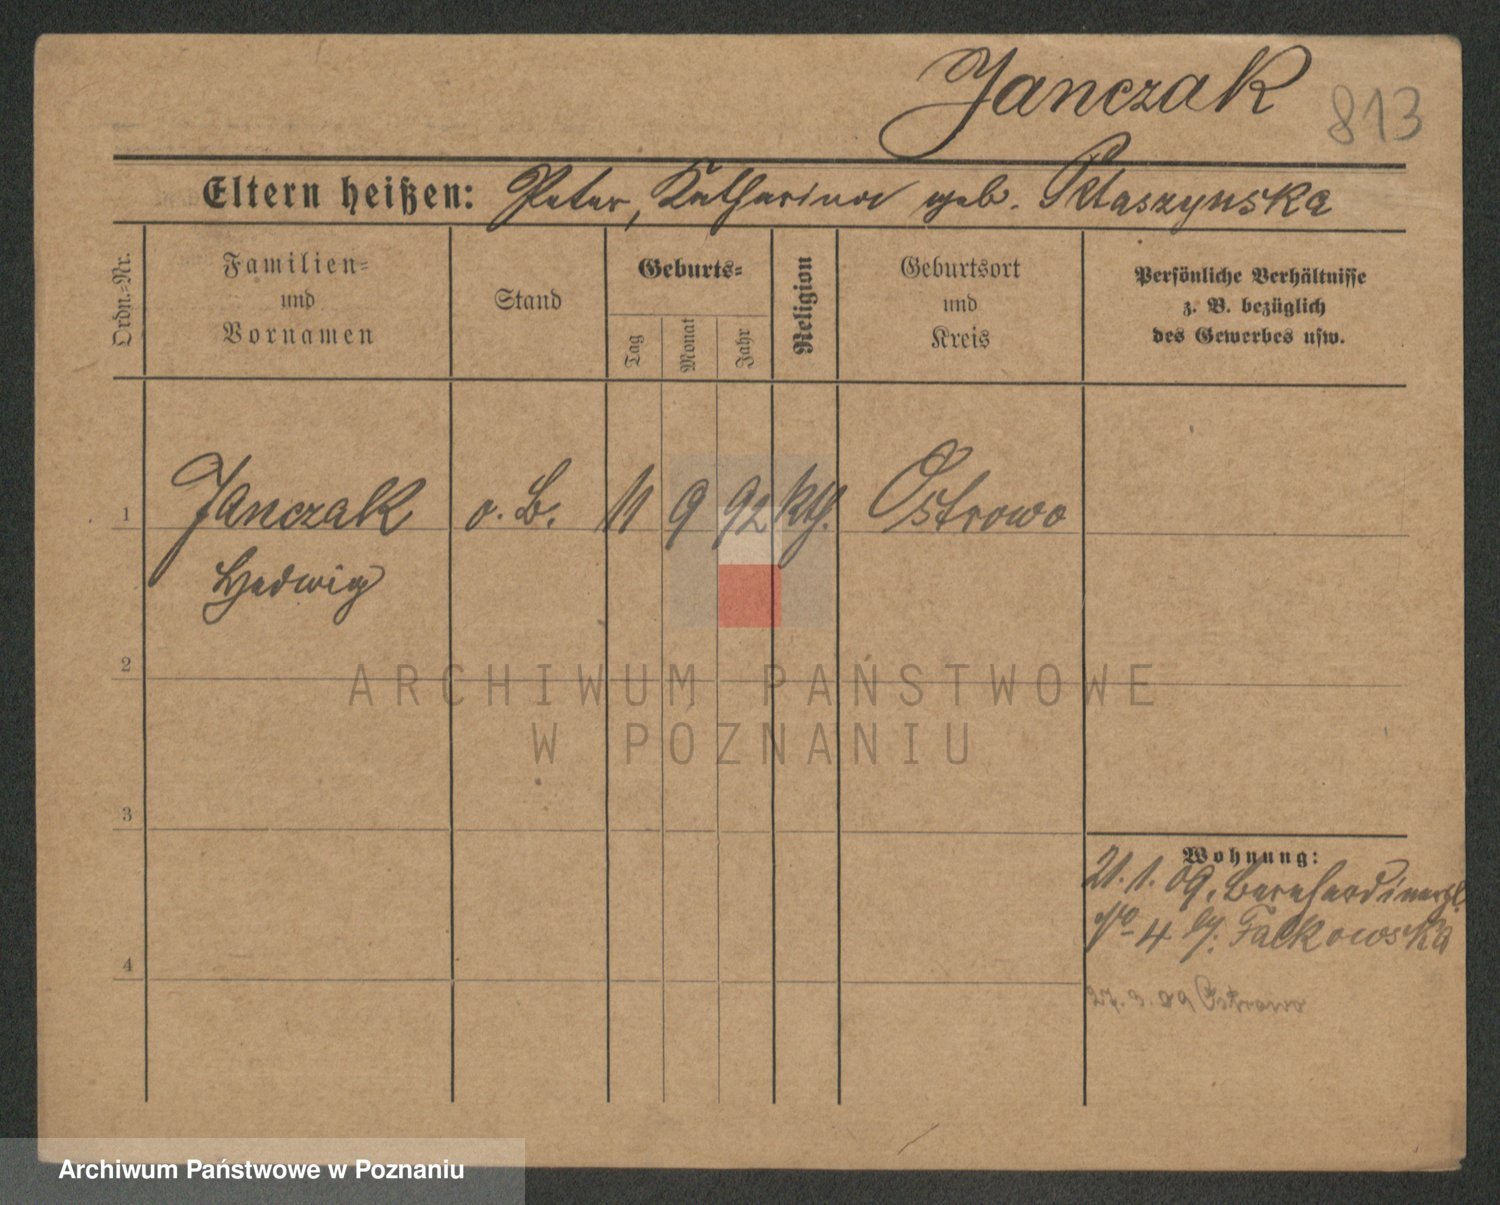 Janczak 813
Eltern heißen: Peter, Katharina geb. Ptaszynska
Ordn.-Nr.
Familien-
und
Vornamen
Stand
Geburts-
Tag
Monat
Jahr
Religion
Geburtsort
und
Kreis
Persönliche Verhältnisse
z. B. bezüglich
des Gewerbes usw.
1 Janczak o. B. 11 9 92 kth. Ostrowo
Hedwig
2
ARCHIWUM PAŃSTWOWE
W POZNANIU
3
Wohnung:
21.1.09. Bernhardinerpl.
No 4 b/: Falkowska
4
27.3.09 Ostrowo
Archiwum Państwowe w Poznaniu